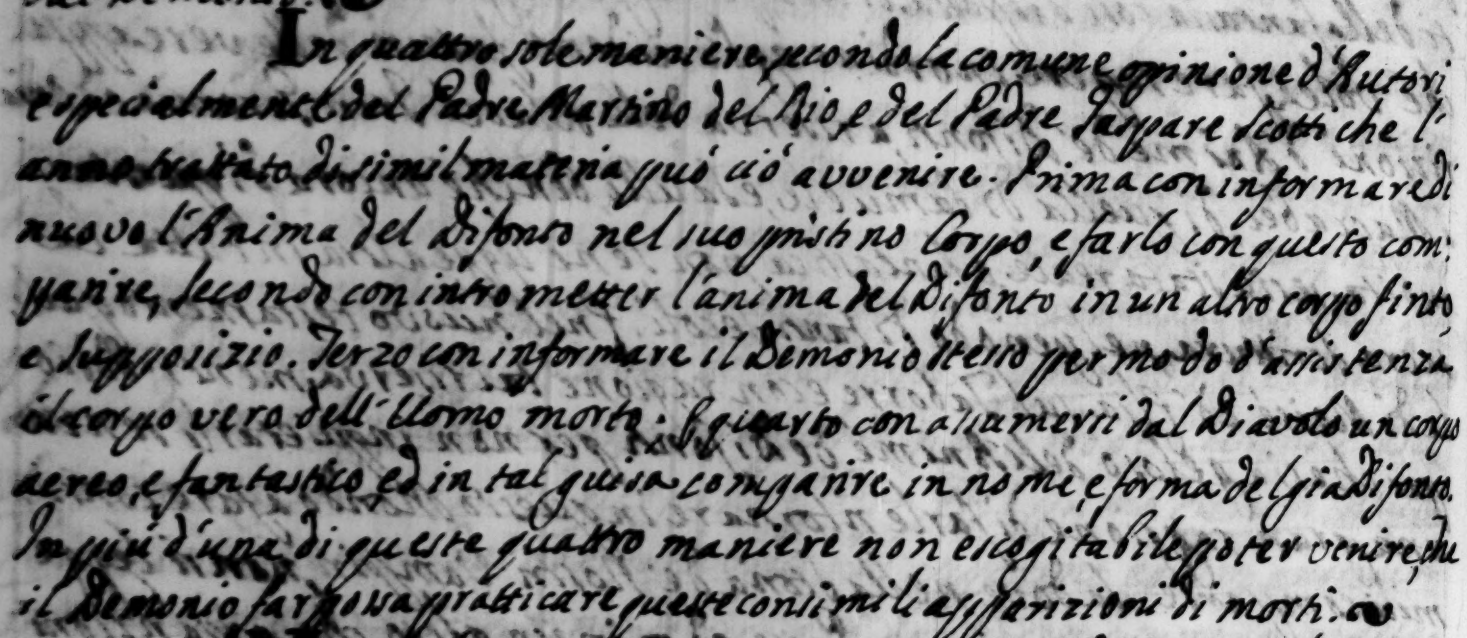 In quattro sole maniere, secondo la comune opinione d'Autori
e specialmente del Padre Martino del Rio, e del Padre Gaspare Scotti che l'
anno trattato di simil materia può ciò avvenire. Prima con informare di
nuovo l'Anima del Difonto nel suo pristino Corpo, e farlo con questo com:
parire, Secondo con intrometter l'anima del Difonto in un altro corpo finto,
e supposizio. Terzo con informare il Demonio stesso per modo d'assistenza
il corpo vero dell'Uomo morto. E quarto con assumersi dal Diavolo un corpo
aereo, e fantastico, ed in tal guisa comparire in nome, e forma del già Difonto.
In più d'una di queste quattro maniere non escogitabile poter venire, che
il Demonio far possa pratticare queste consimili apparizioni di morti.